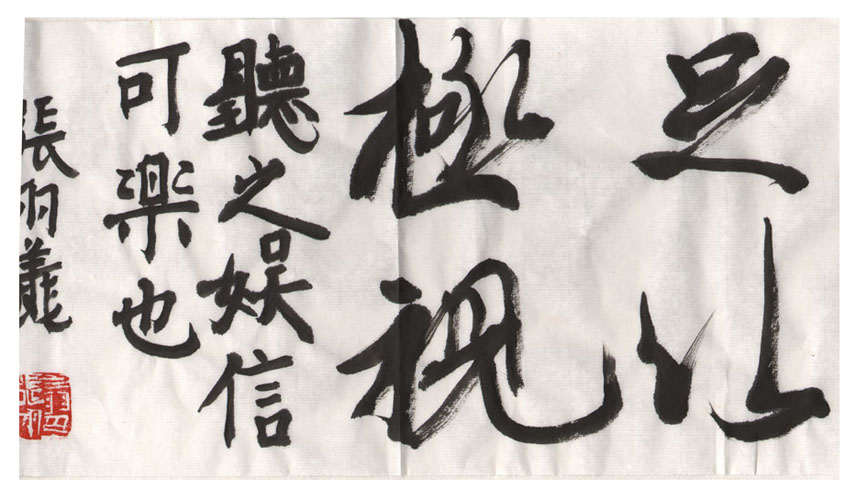 足以
極視
聽之娛信
可楽也
張羽義